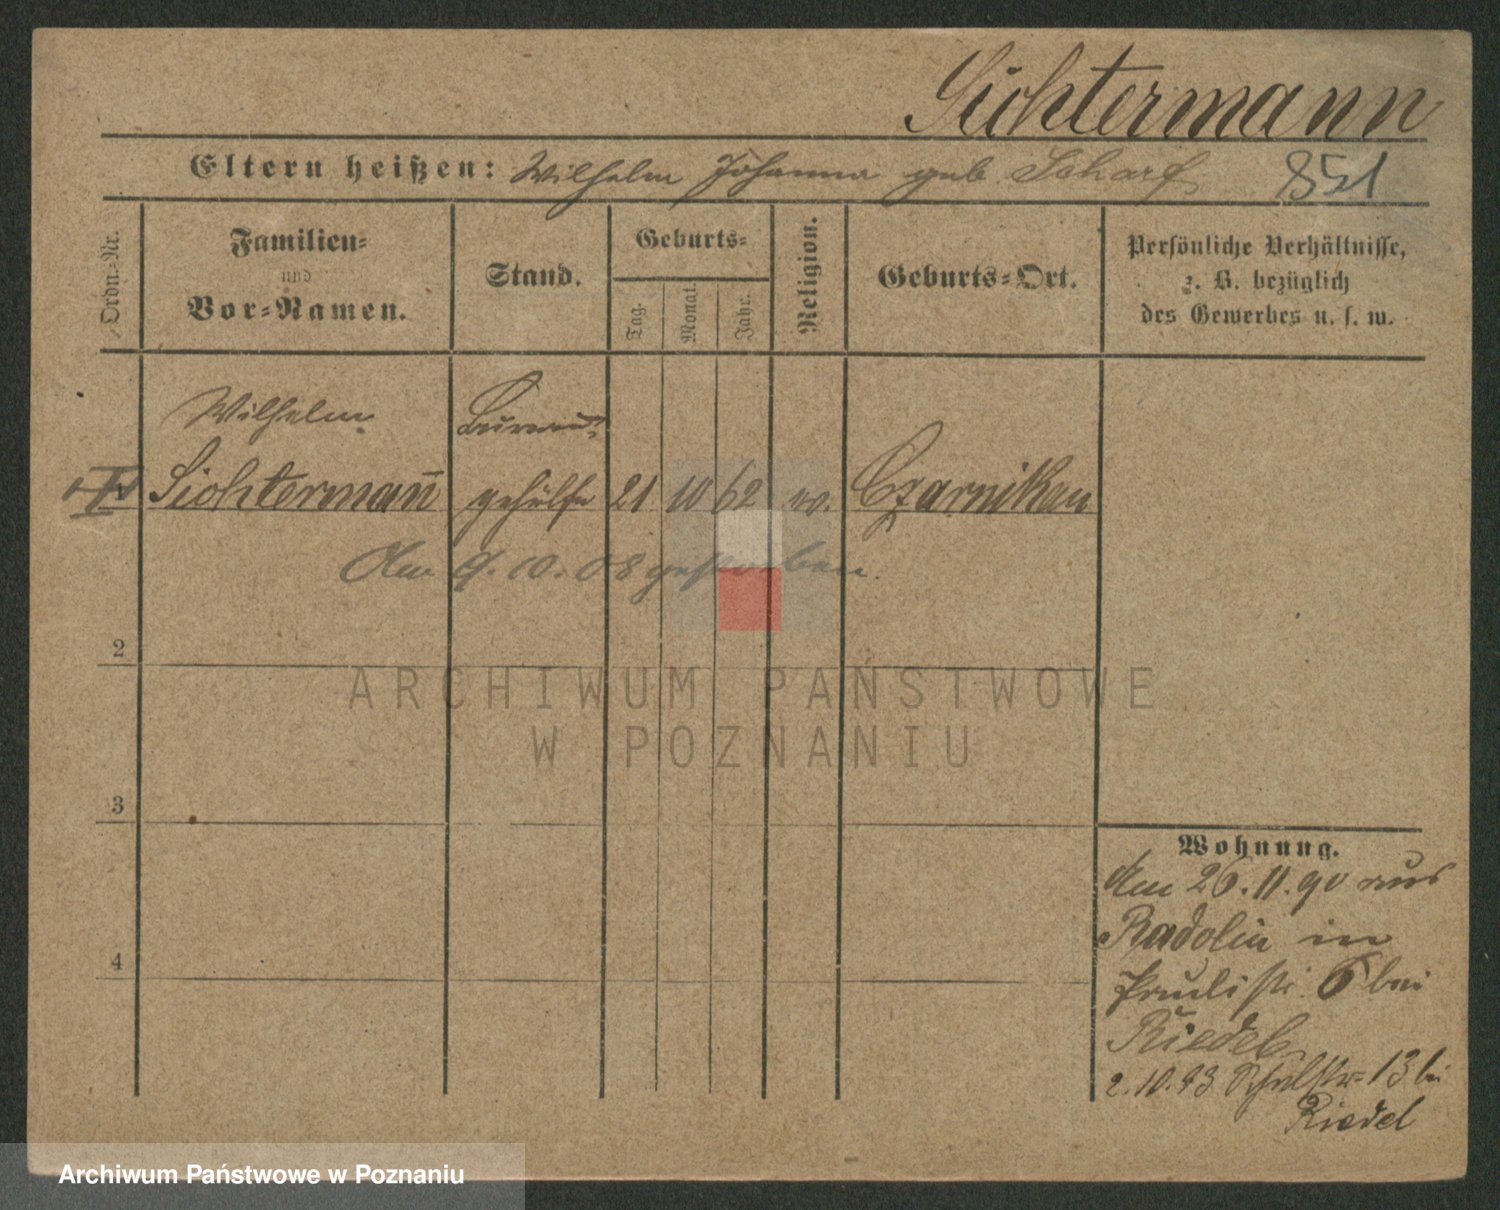 Sichtermann
Eltern heißen: Wilhelm Johanna geb. Scharf 851
Ordn.-Nr.
Familien-
und
Vor-Namen.
Stand.
Geburts-
Tag.
Monat.
Jahr.
Religion.
Geburts-Ort.
Persönliche Verhältnisse,
z. B. bezüglich
des Gewerbes u. s. w.
Wilhelm Bureau-
Sichtermañ gehülfe 21 10 62 ev. Czarnikau
Am 9.10.08 gestorben.
2
3
4
Wohnung.
Am 26.11.90 aus
Radolin in
str. 6 bei
Riedel
2.10.93 Schulstr. 13 bei
Riedel
ARCHIWUM PAŃSTWOWE
W POZNANIU
Archiwum Państwowe w Poznaniu